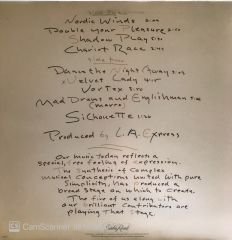 Nordic Winds
Double your Pleasure
Shadow Play
Chariot Race
side two
Dance the Night Away
Velvet Lady
Vortex
Mad Drums and Englishman
Silhouette
Produced by L.A. Express
Our music today reflects a
special, free feeling of expression.
The Synthesis of Complex
musical conceptions united with pure
Simplicity, has produced a
broad stage on which to create.
The five of us along with
our brilliant contributors are
playing that stage.
CamScanner